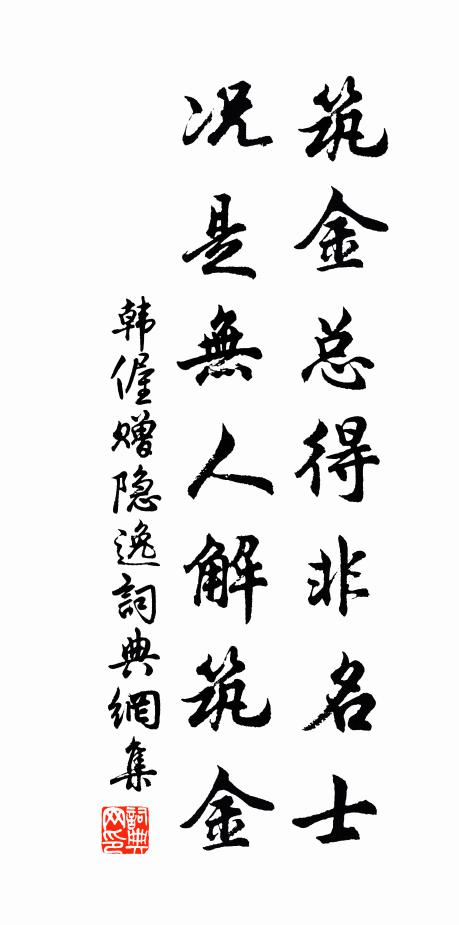 筑金总得非名士
况是無人解筑金
韩偓赠隐逸詞典網集
詞典网印